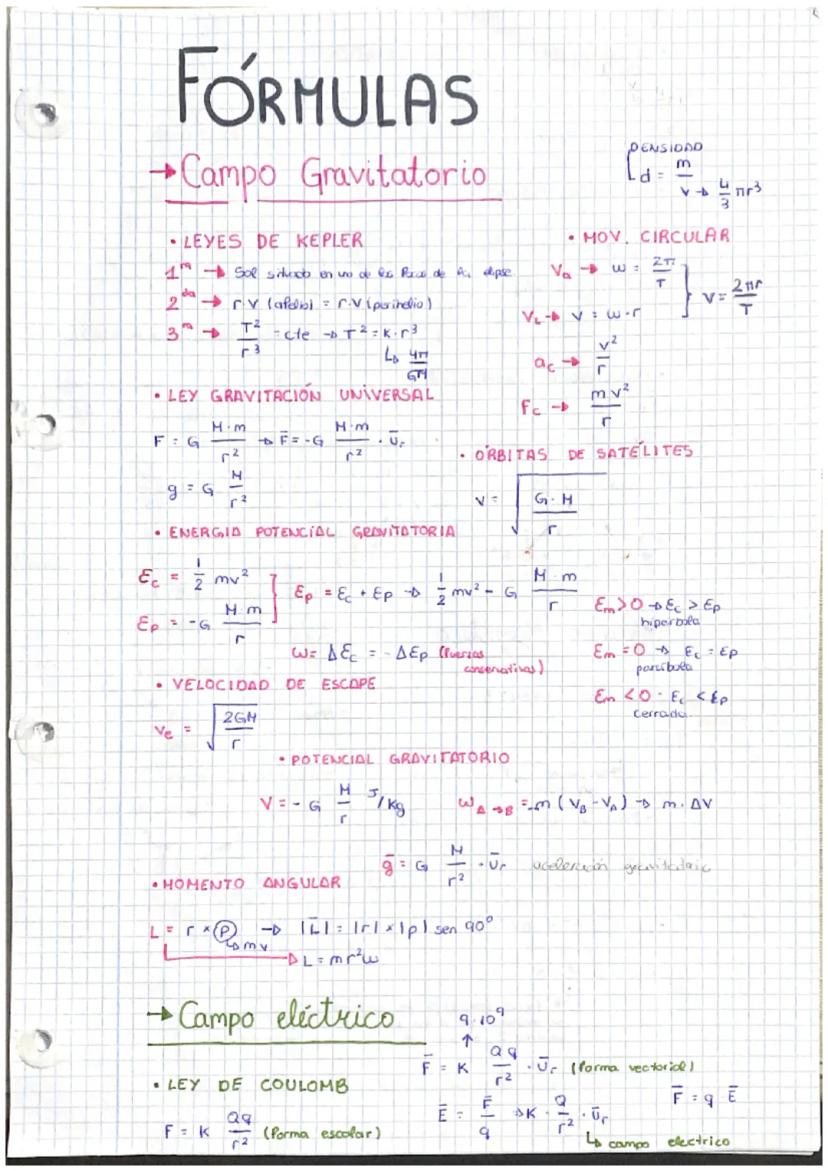 FÓRMULAS
→ Campo Gravitatorio
DENSIDAD
d = m / V → 4/3 πr³
• LEYES DE KEPLER
1ra → Sol situado en uno de los focos de la elipse
2da → r.v (afelio) = r.v (perihelio)
3ra → T²/r³ = cte → T² = K·r³
↳ 4π/GM
• MOV. CIRCULAR
Va → ω = 2π/T
VL → v = ω·r
} V = 2πr/T
ac → v²/r
Fc → mv²/r
• LEY GRAVITACIÓN UNIVERSAL
F = G M·m/r² → F̄ = -G M·m/r² · ūr
g = G M/r²
• ÓRBITAS DE SATÉLITES
V = √(G·M/r)
• ENERGIA POTENCIAL GRAVITATORIA
Ec = 1/2 mv²
Ep = -G M·m/r
] Ep = Ec + Ep → 1/2 mv² - G M·m/r
W = ΔEc = -ΔEp (fuerzas conservativas)
Em > 0 → Ec > Ep
hiperbola
Em = 0 → Ec = Ep
parábola
Em < 0 · Ec < Ep
cerrada
• VELOCIDAD DE ESCAPE
Ve = √(2GM/r)
• POTENCIAL GRAVITATORIO
V = -G M/r J/Kg
WA→B = -m (VB - VA) → m·ΔV
ḡ = G M/r² · ūr aceleración gravitatoria
• MOMENTO ANGULAR
L = r × p → |L̄| = |r| × |p| sen 90º
↳ mv
→ L = mr²ω
→ Campo eléctrico
• LEY DE COULOMB
F = K Qq/r² (forma escolar)
9·10⁹
↑
F̄ = K Qq/r² · ūr (forma vectorial)
Ē = F̄/q → K · Q/r² · ūr
↳ campo electrico
F̄ = q Ē